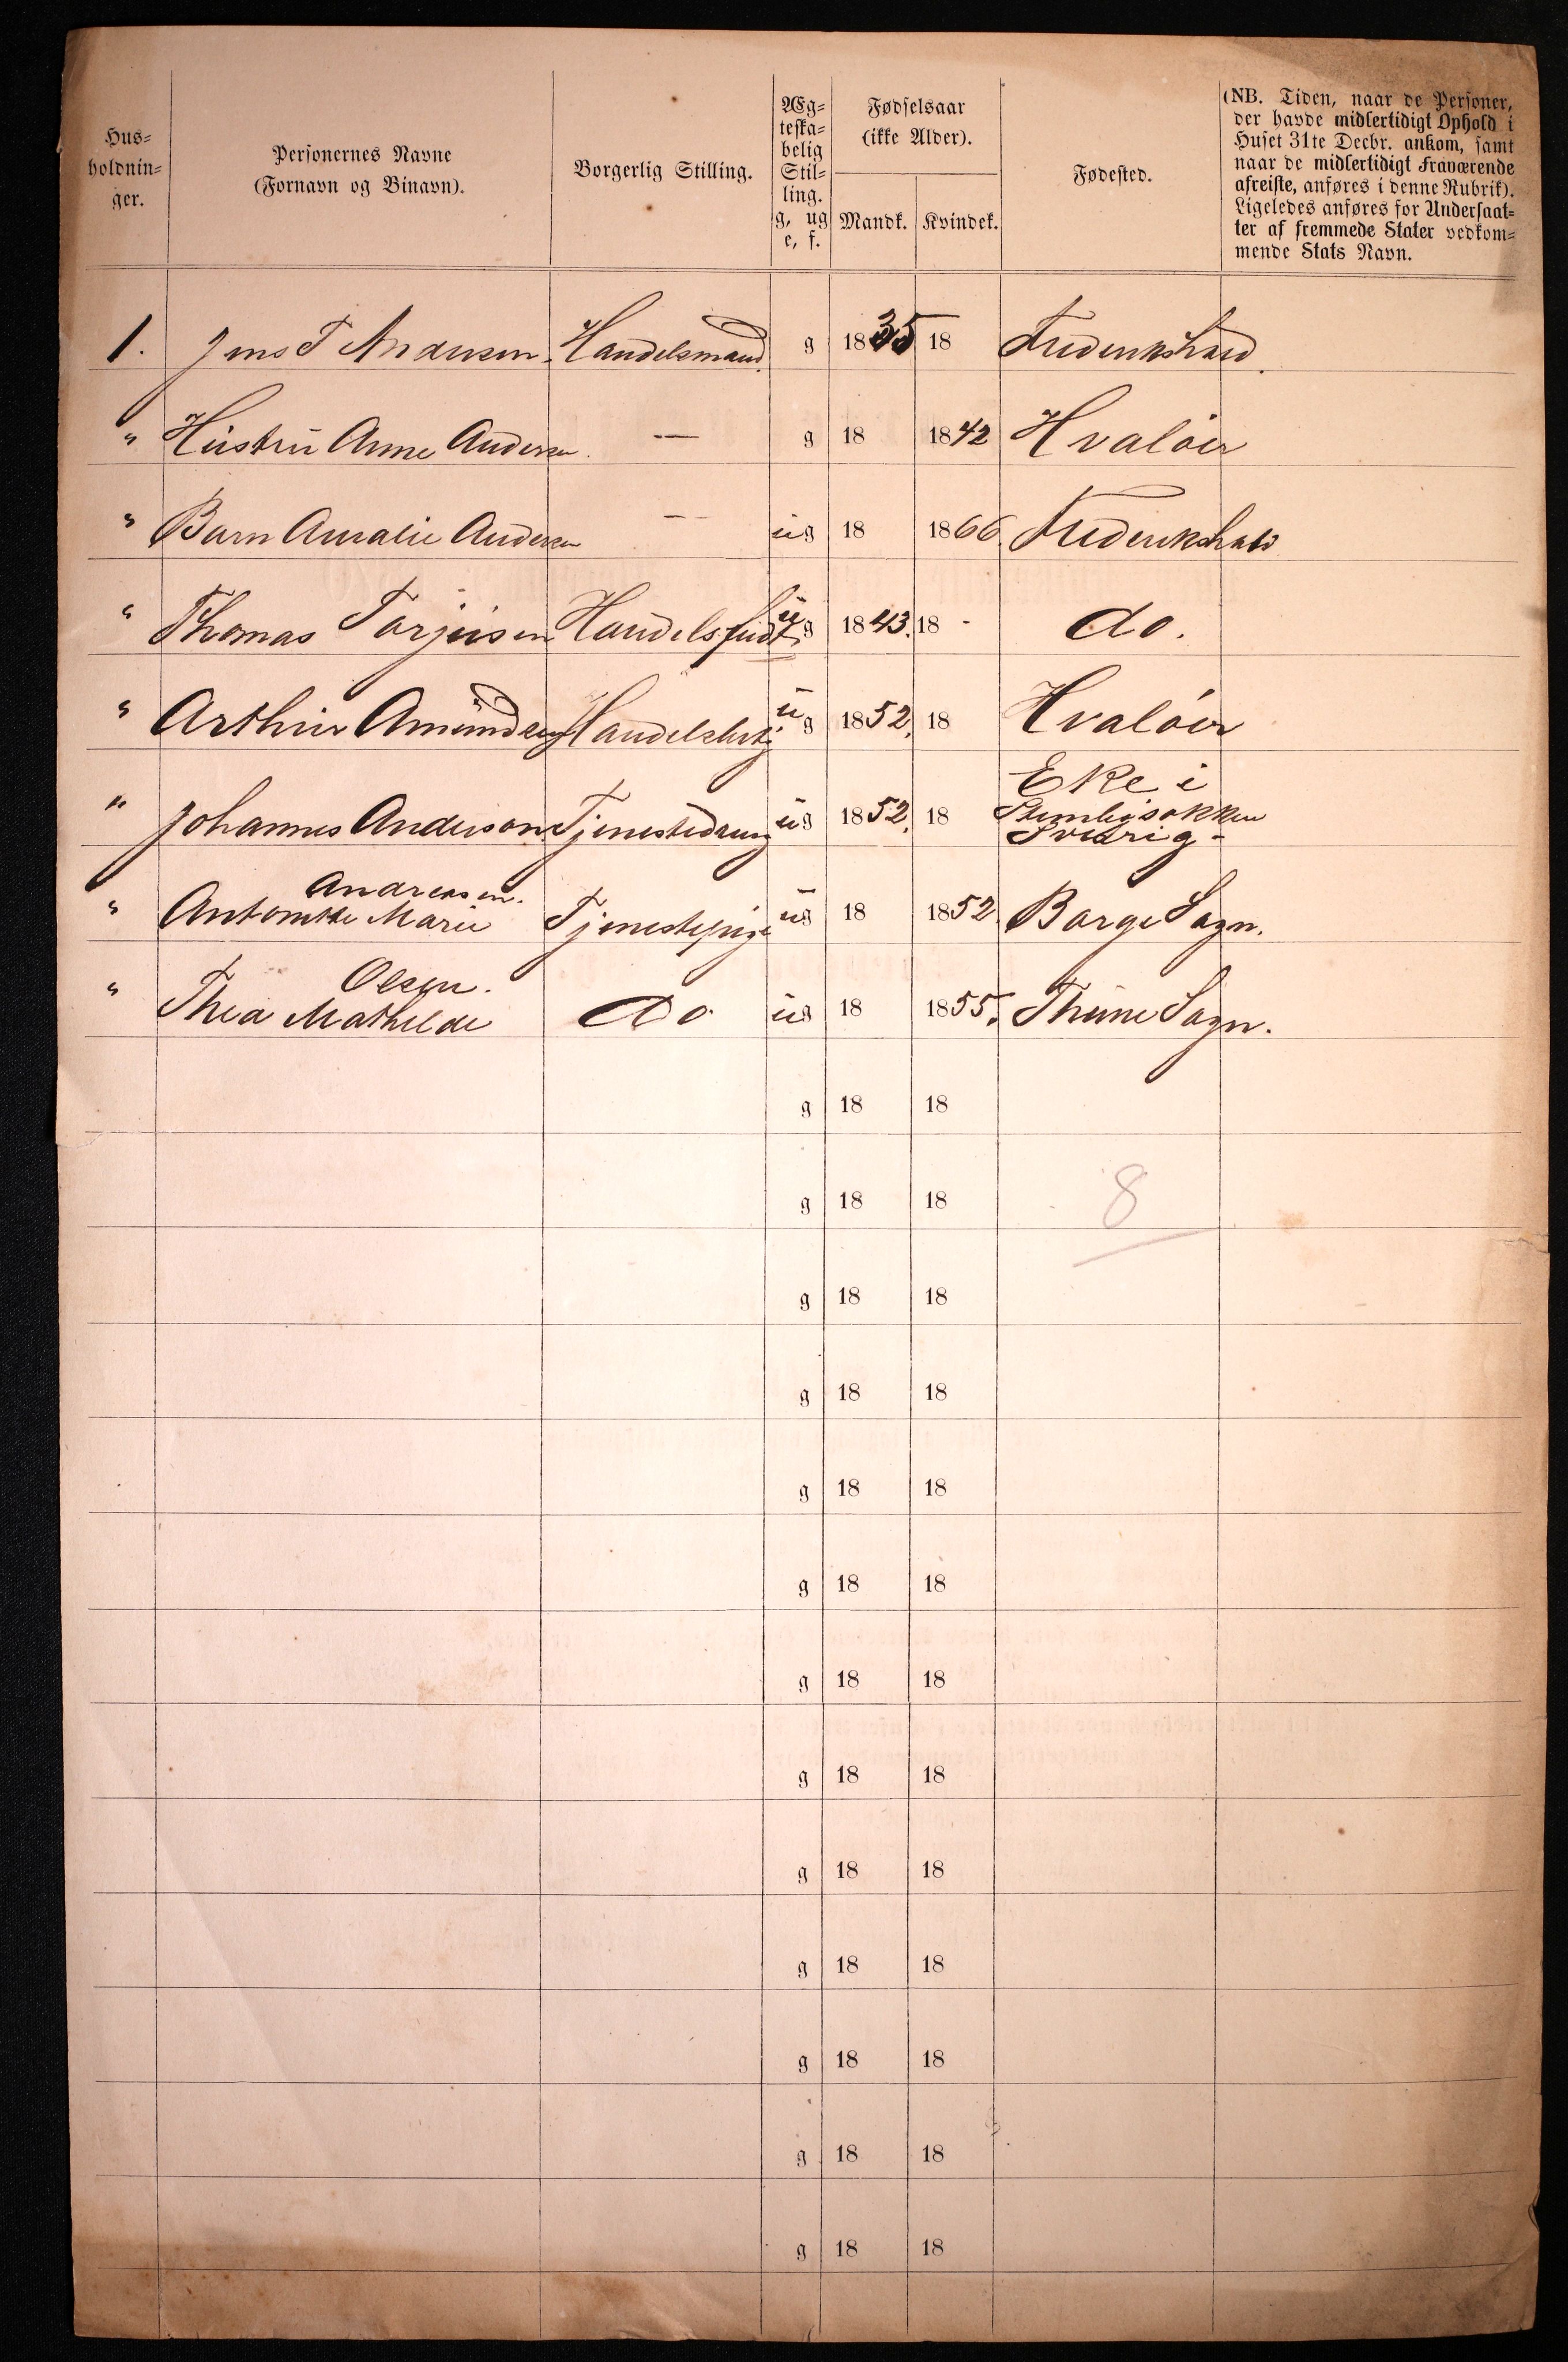 Hus=
holdnin=
ger.
Personernes Navne
(Fornavn og Binavn).
Borgerlig Stilling.
Æg=
teska=
belig
Stil=
ling.
g, ug
e, f.
Fødselsaar
(ikke Alder).
Mandk. Kvindek.
Fødested.
(NB. Tiden, naar de Personer,
der havde midlertidigt Ophold i
Huset 31te Decbr. ankom, samt
naar de midlertidigt Fraværende
afreiste, anføres i denne Rubrik).
Ligeledes anføres for Undersaat=
ter af fremmede Stater vedkom=
mende Stats Navn.
1. Jens T Andersen. Handelsmand. g 1835 18 Frederikshald.
" Hustru Anne Andersen. — g 18 1842 Hvaløer
" Barn Amalie Andersen — ug 18 1866. Frederikshald
" Thomas Torjusen Handelsfudt. ug 1843. 18 - do.
" Arthur Amundsen Handelsbetj ug 1852. 18 Hvaløer
" Johannes Anderson Tjenestedreng ug 1852. 18 Eke i
Sverrig -
Andreasen.
" Antonette Marie Tjenestepige ug 18 1852. Borge Sogn.
Olsen.
" Thea Mathilde do ug 18 1855. Thune Sogn.
g 18 18
g 18 18 8
g 18 18
g 18 18
g 18 18
g 18 18
g 18 18
g 18 18
g 18 18
g 18 18
g 18 18
g 18 18
g 18 18